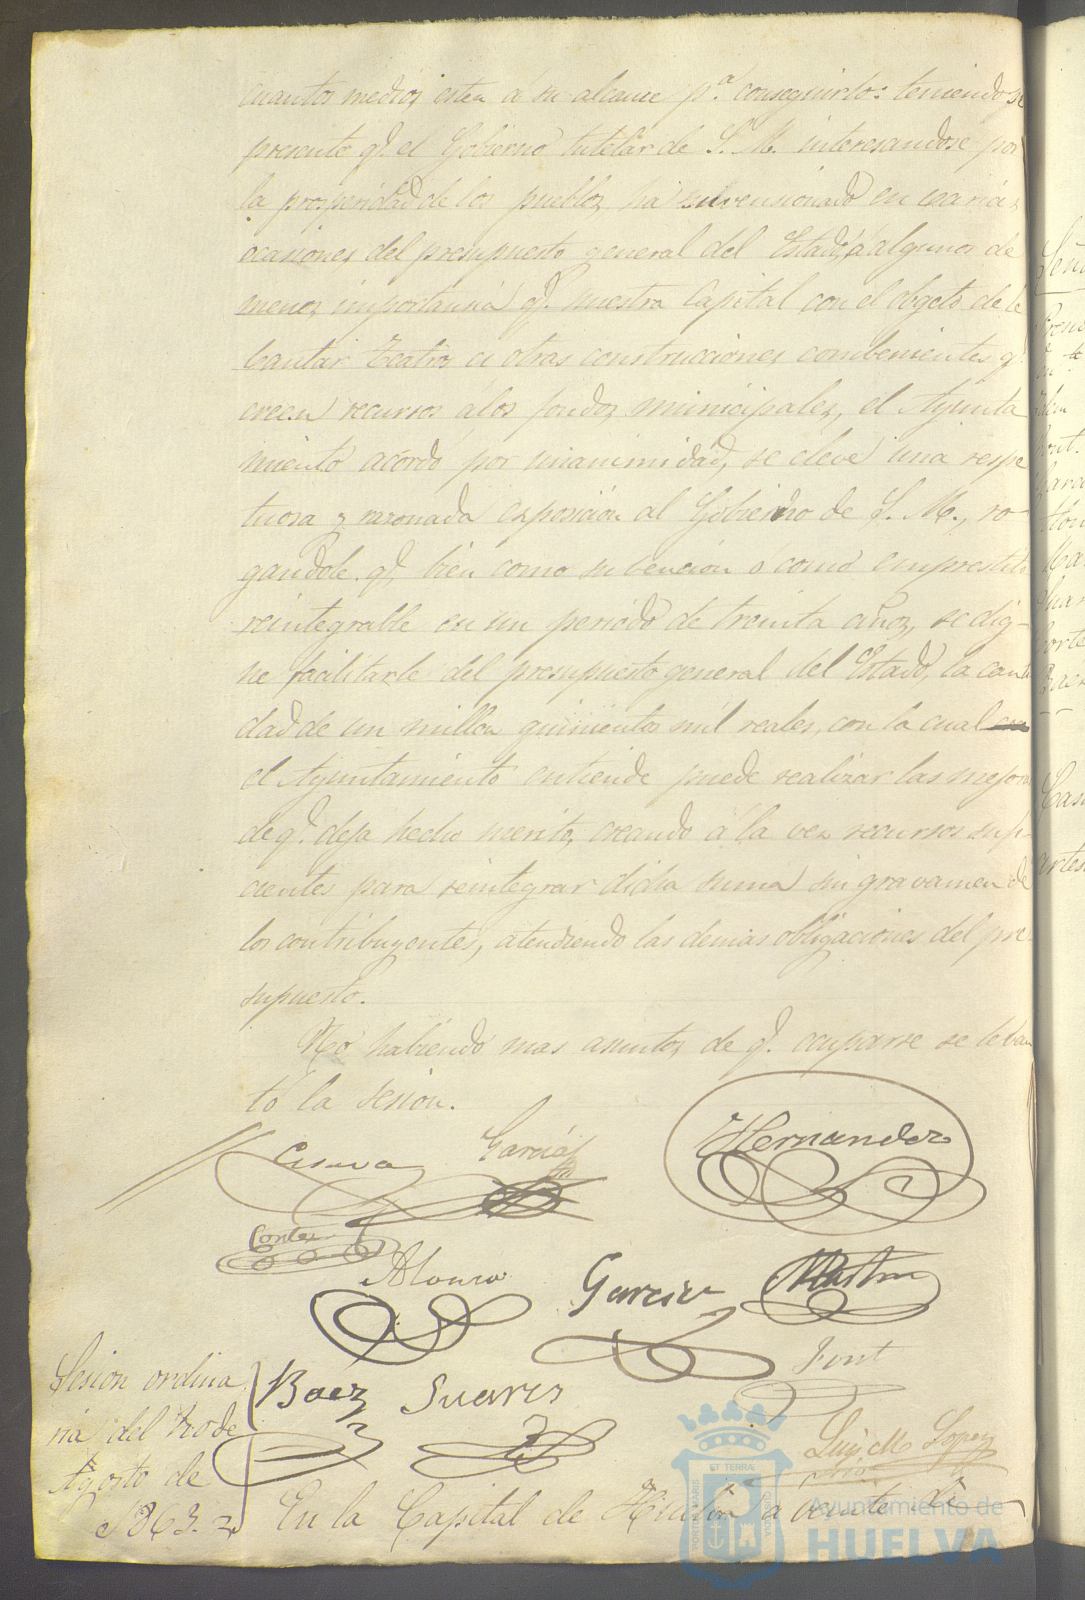 cuantos medios esten á su alcance pª. conseguirlo: teniendose
presente q.e el Gobierno tutelar de S. M. interesandose por
la prosperidad de los pueblos, ha subvensionado en varias
ocasiones del presupuesto general del Estado, á algunos de
menos importancia q.e nuestra Capital con el obgeto de le
bantar Teatros ú otras construcciones combenientes q.e
creen recursos á los fondos municipales, el Ayunta
miento acordó por unanimidad, se eleve una respe
tuosa y razonada exposicion al Gobierno de S. M., ro-
gandole q.e, bien como subencion ó como emprestito
reintegrable en un periodo de treinta años, se dig-
ne facilitarle del presupuesto general del Estado, la canti
dad de un millon quinientos mil reales, con la cual
el Ayuntamiento entiende puede realizar las mejoras
de q.e deja hecho merito, creando á la vez recursos sufi-
cientes para reintegrar dicha suma sin gravamen de
los contribuyentes, atendiendo las demas obligaciones del pre-
supuesto.
No habiendo mas asuntos de q.e ocuparse se leban
tó la sesion.
Garcia
Hernandez
Cortes
Alonso
Garcia
Martin
Font
Baez
Suarez
Luis M Lopez
Srio
Sesion ordina
ria del 20 de
Agosto de
1863.
En la Capital de Huelva á veinte de
Ayuntamiento de
HUELVA